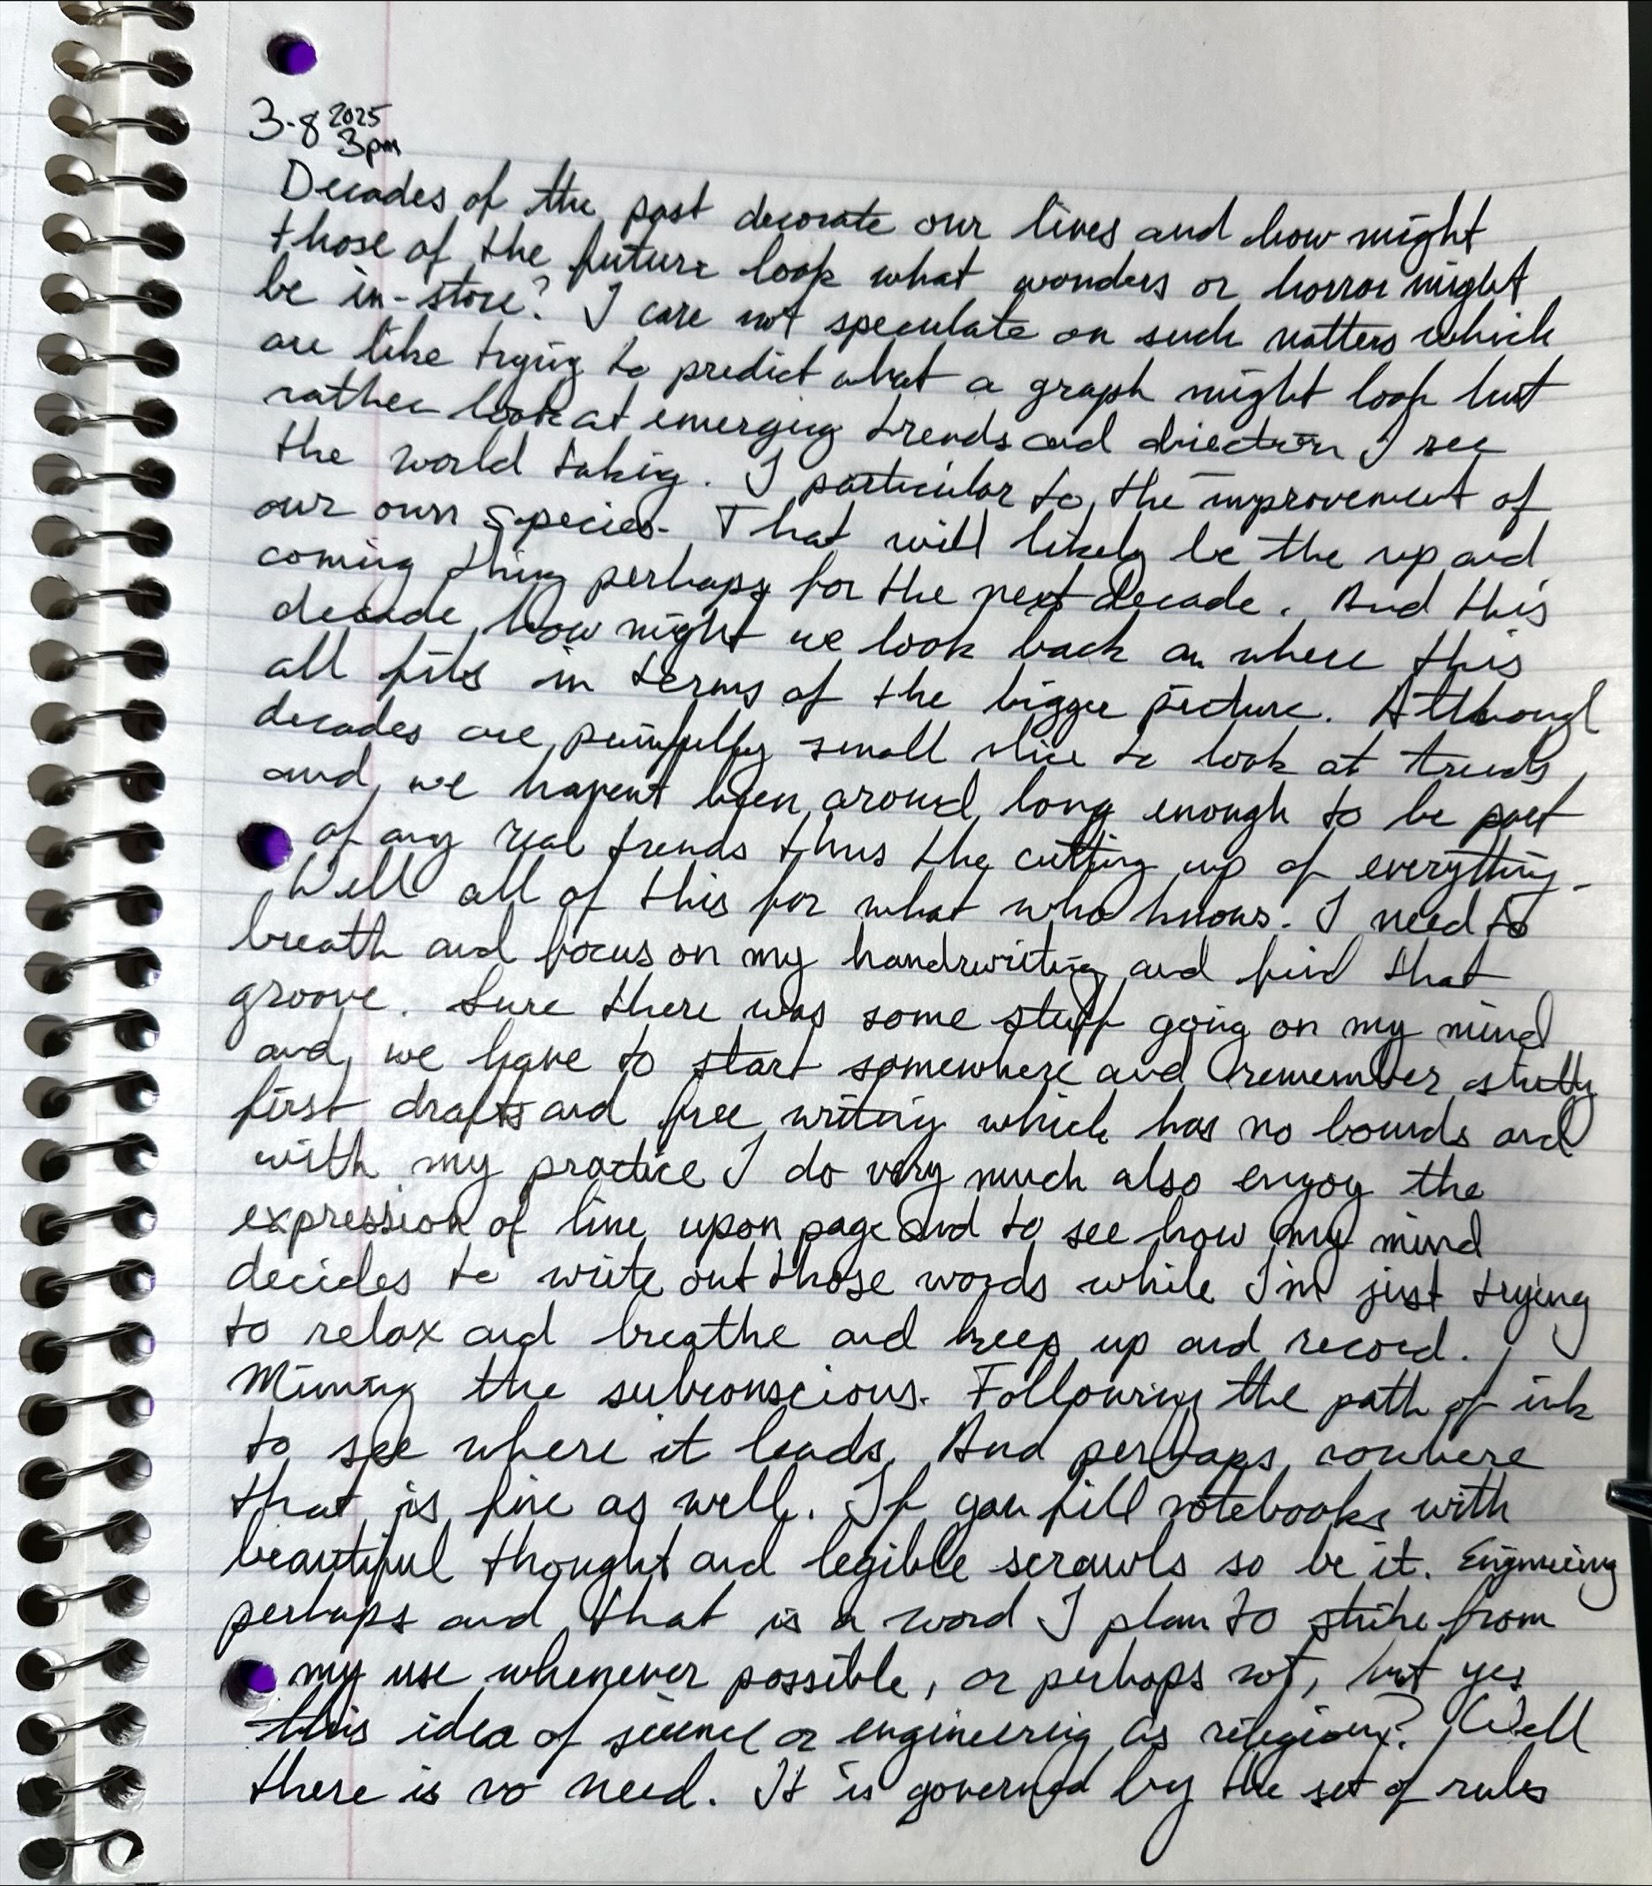 3-8 2025
3pm
Decades of the past decorate our lives and how might
those of the future look what wonders or horror might
be in-store? I care not speculate on such matters which
are like trying to predict what a graph might look but
rather look at emerging trends and direction I see
the world taking. I particular to the improvement of
our own species. That will likely be the up and
coming thing perhaps for the next decade. And this
decade how might we look back on where this
all fits in terms of the bigger picture. Although
decades are painfully small slice to look at trends
and we havent been around long enough to be part
of any real trends thus the cutting up of everything.
Well all of this for what who knows. I need to
breath and focus on my handwriting and find that
groove. Sure there was some stuff going on my mind
and we have to start somewhere and remember
first drafts and free writing which has no bounds and
with my practice I do very much also enjoy the
expression of line upon page and to see how my mind
decides to write out those words while I'm just trying
to relax and breathe and keep up and record.
Mining the subconscious. Following the path of ink
to see where it leads. And perhaps nowhere
that is fine as well. If you fill notebooks with
beautiful thought and legible scrawls so be it.
perhaps and that is a word I plan to strike from
my use whenever possible, or perhaps not, but yes
this idea of science or engineering as religion? Well
there is no need. It is governed by the set of rules